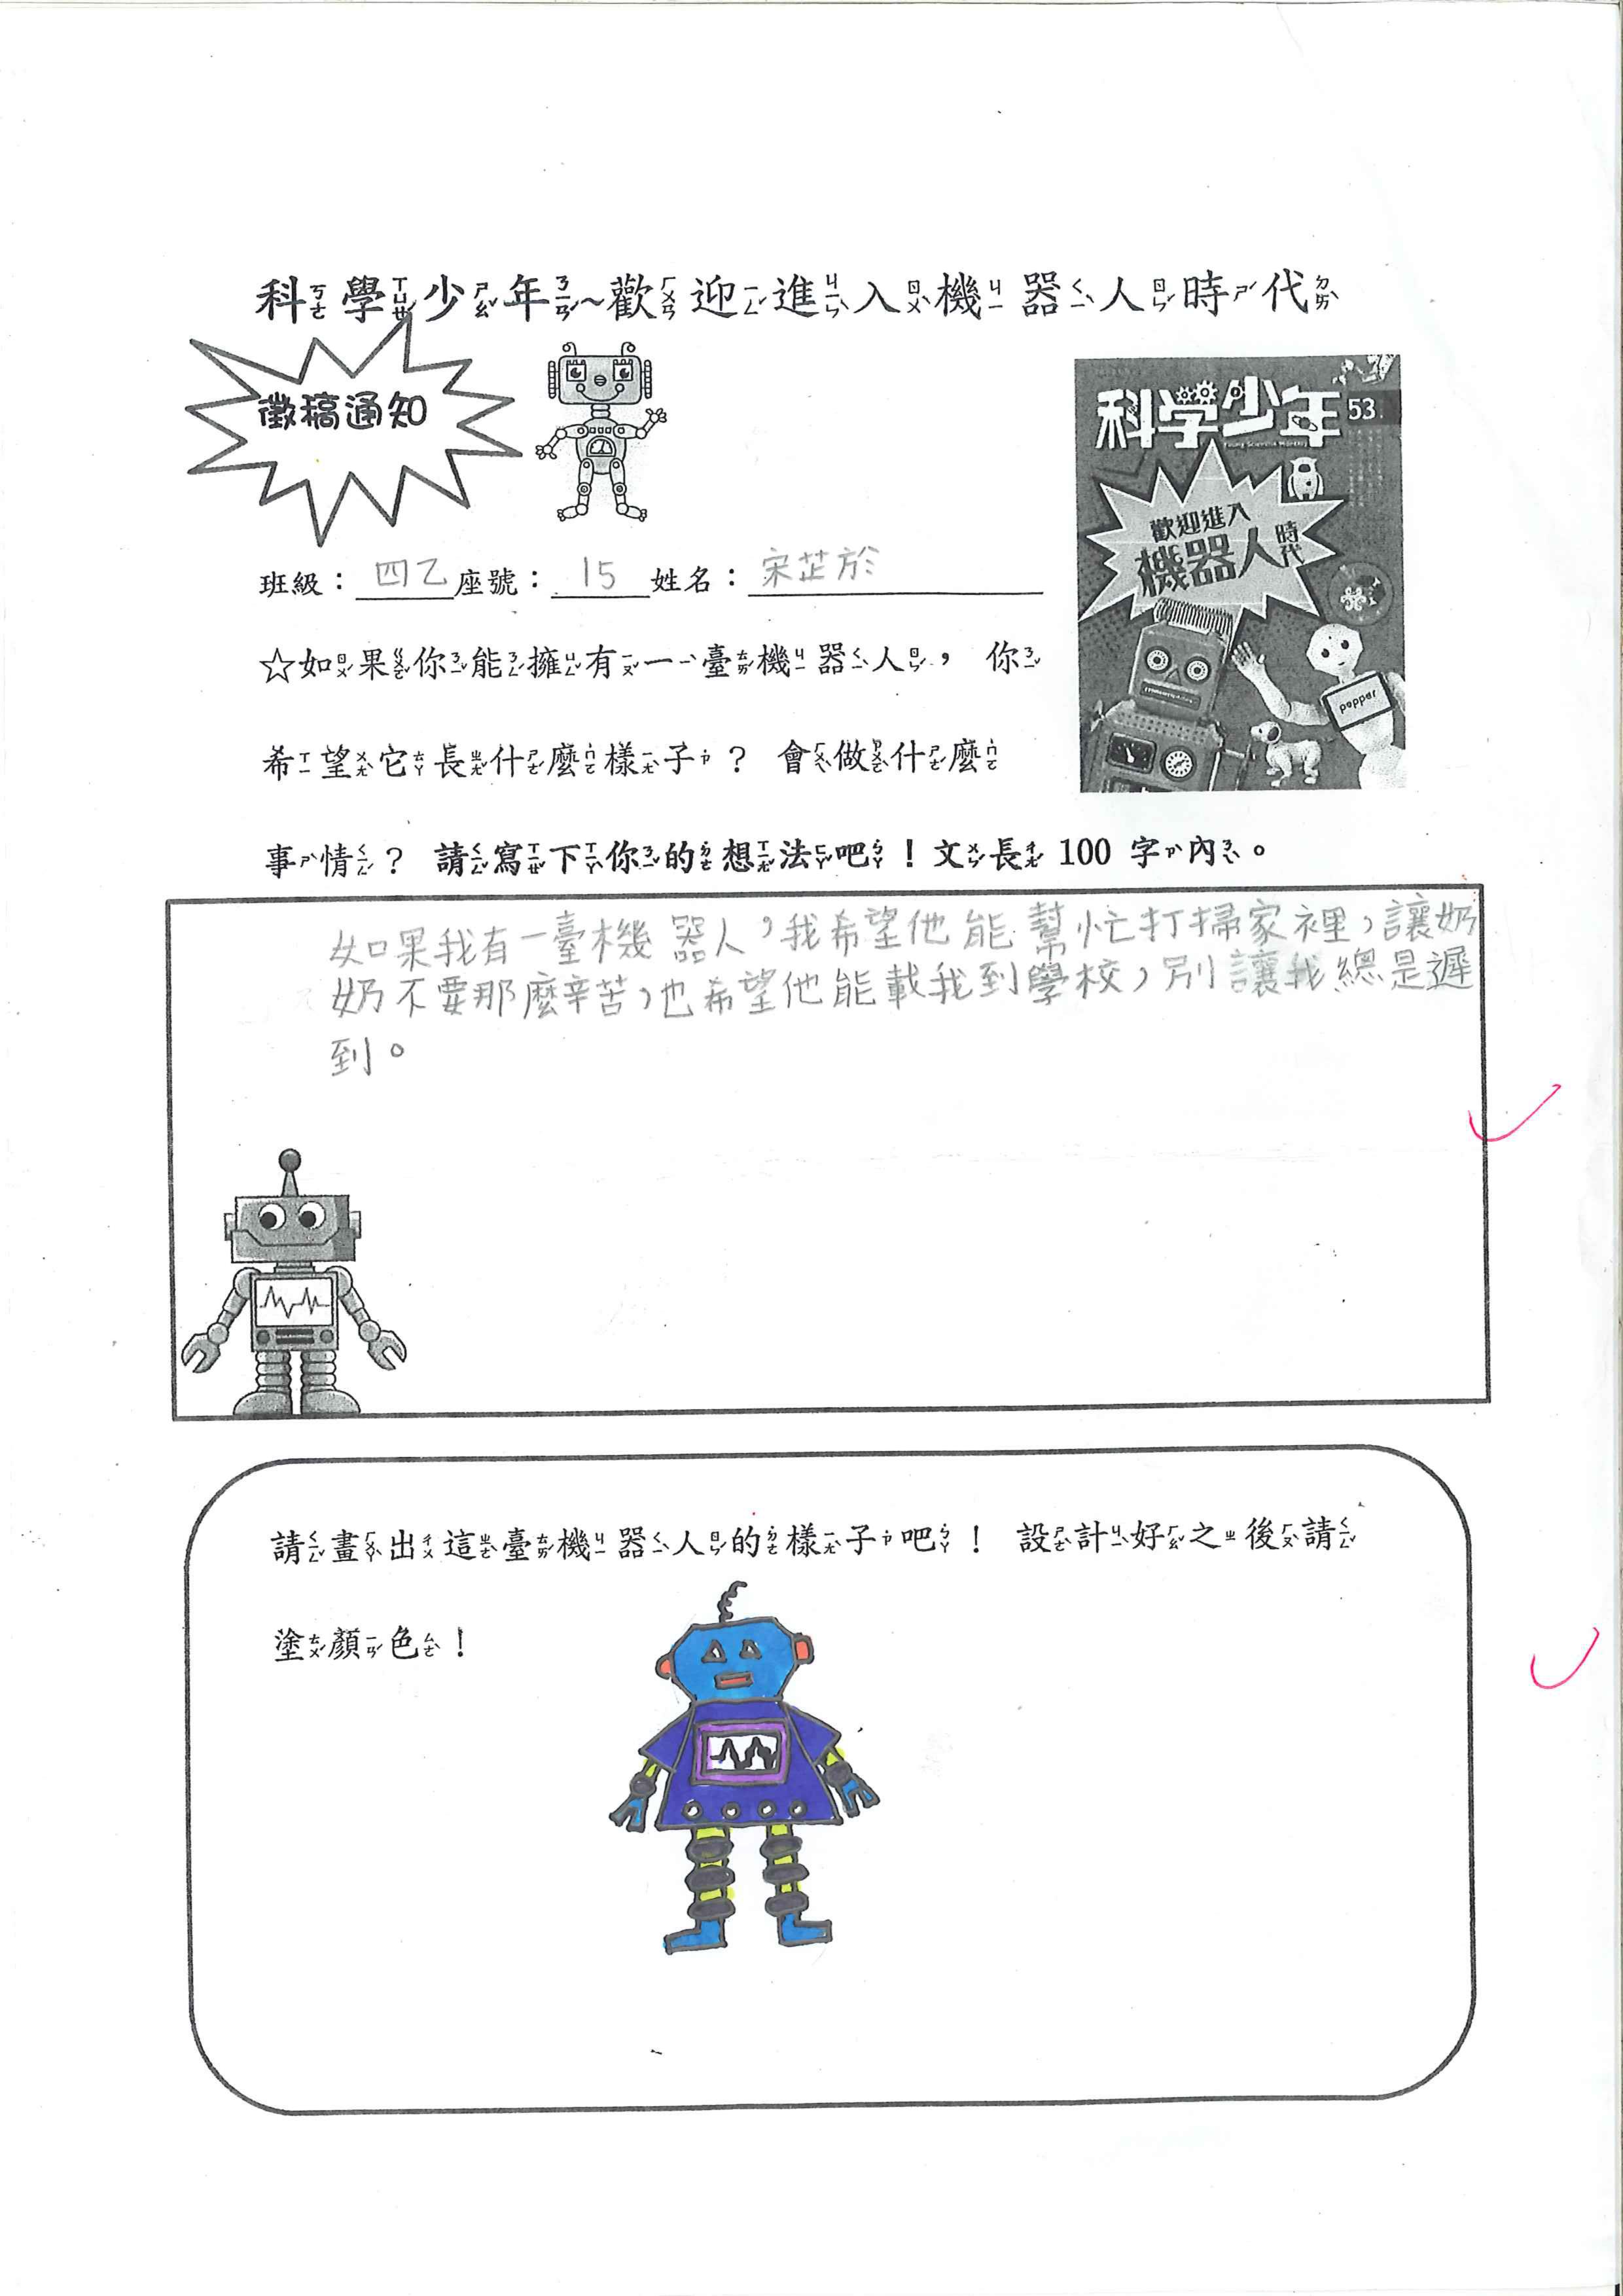 科學少年~歡迎進入機器人時代
徵稿通知
科学少年 53
Young Scientist Monthly
歡迎進入
機器人時代
pepper
班級：四乙座號：15姓名：宋芷於
☆如果你能擁有一臺機器人，你
希望它長什麼樣子？會做什麼
事情？請寫下你的想法吧！文長 100 字內。
如果我有一臺機器人，我希望他能幫忙打掃家裡，讓奶
奶不要那麼辛苦，也希望他能載我到學校，別讓我總是遲
到。
請畫出這臺機器人的樣子吧！設計好之後請
塗顏色！